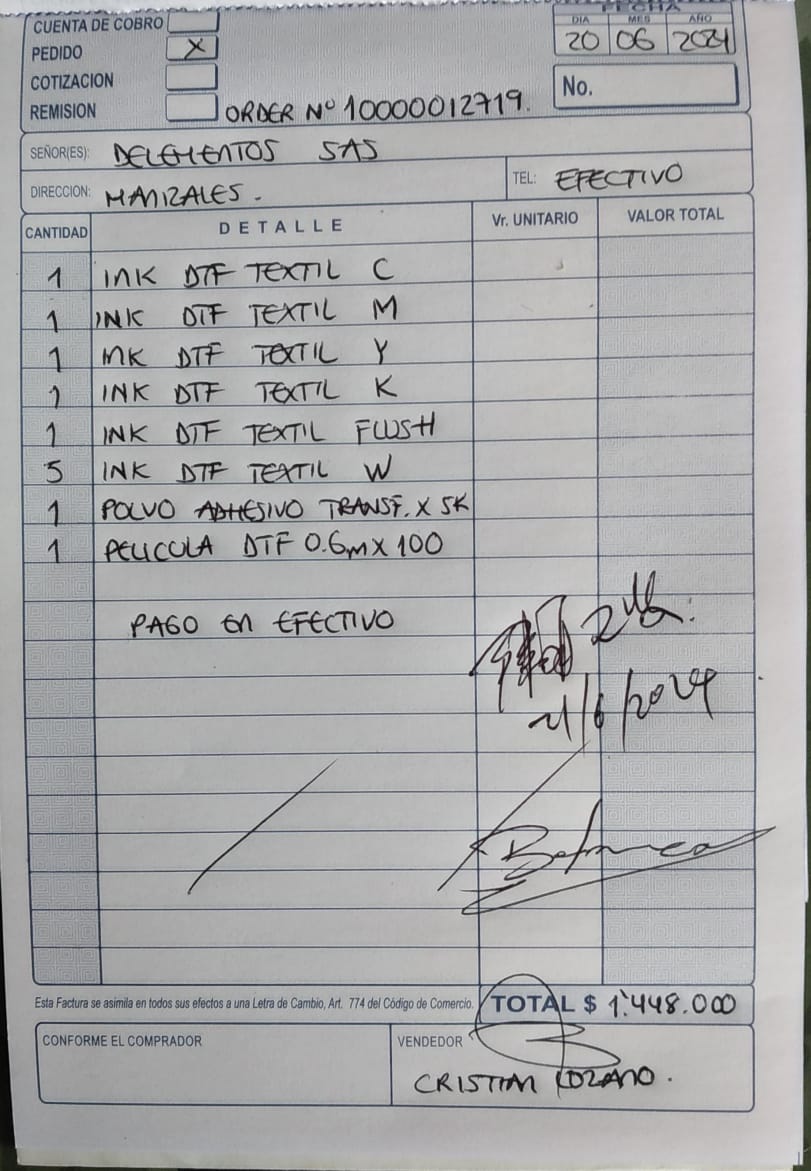 FECHA
CUENTA DE COBRO
DIA MES AÑO
PEDIDO X
20 06 2024
COTIZACION
No.
REMISION
ORDER Nº 10000012719.
SEÑOR(ES): DELEMENTOS SAS
DIRECCION: MANIZALES.
TEL: EFECTIVO
CANTIDAD DETALLE Vr. UNITARIO VALOR TOTAL
1 INK DTF TEXTIL C
1 INK DTF TEXTIL M
1 INK DTF TEXTIL Y
1 INK DTF TEXTIL K
1 INK DTF TEXTIL FLUSH
5 INK DTF TEXTIL W
1 POLVO ADHESIVO TRANSF. X 5K
1 PELICULA DTF 0.6m X 100
PAGO EN EFECTIVO
21/6/2024
Esta Factura se asimila en todos sus efectos a una Letra de Cambio, Art. 774 del Código de Comercio.
TOTAL $ 1'448.000
CONFORME EL COMPRADOR
VENDEDOR
CRISTIAN LOZANO.